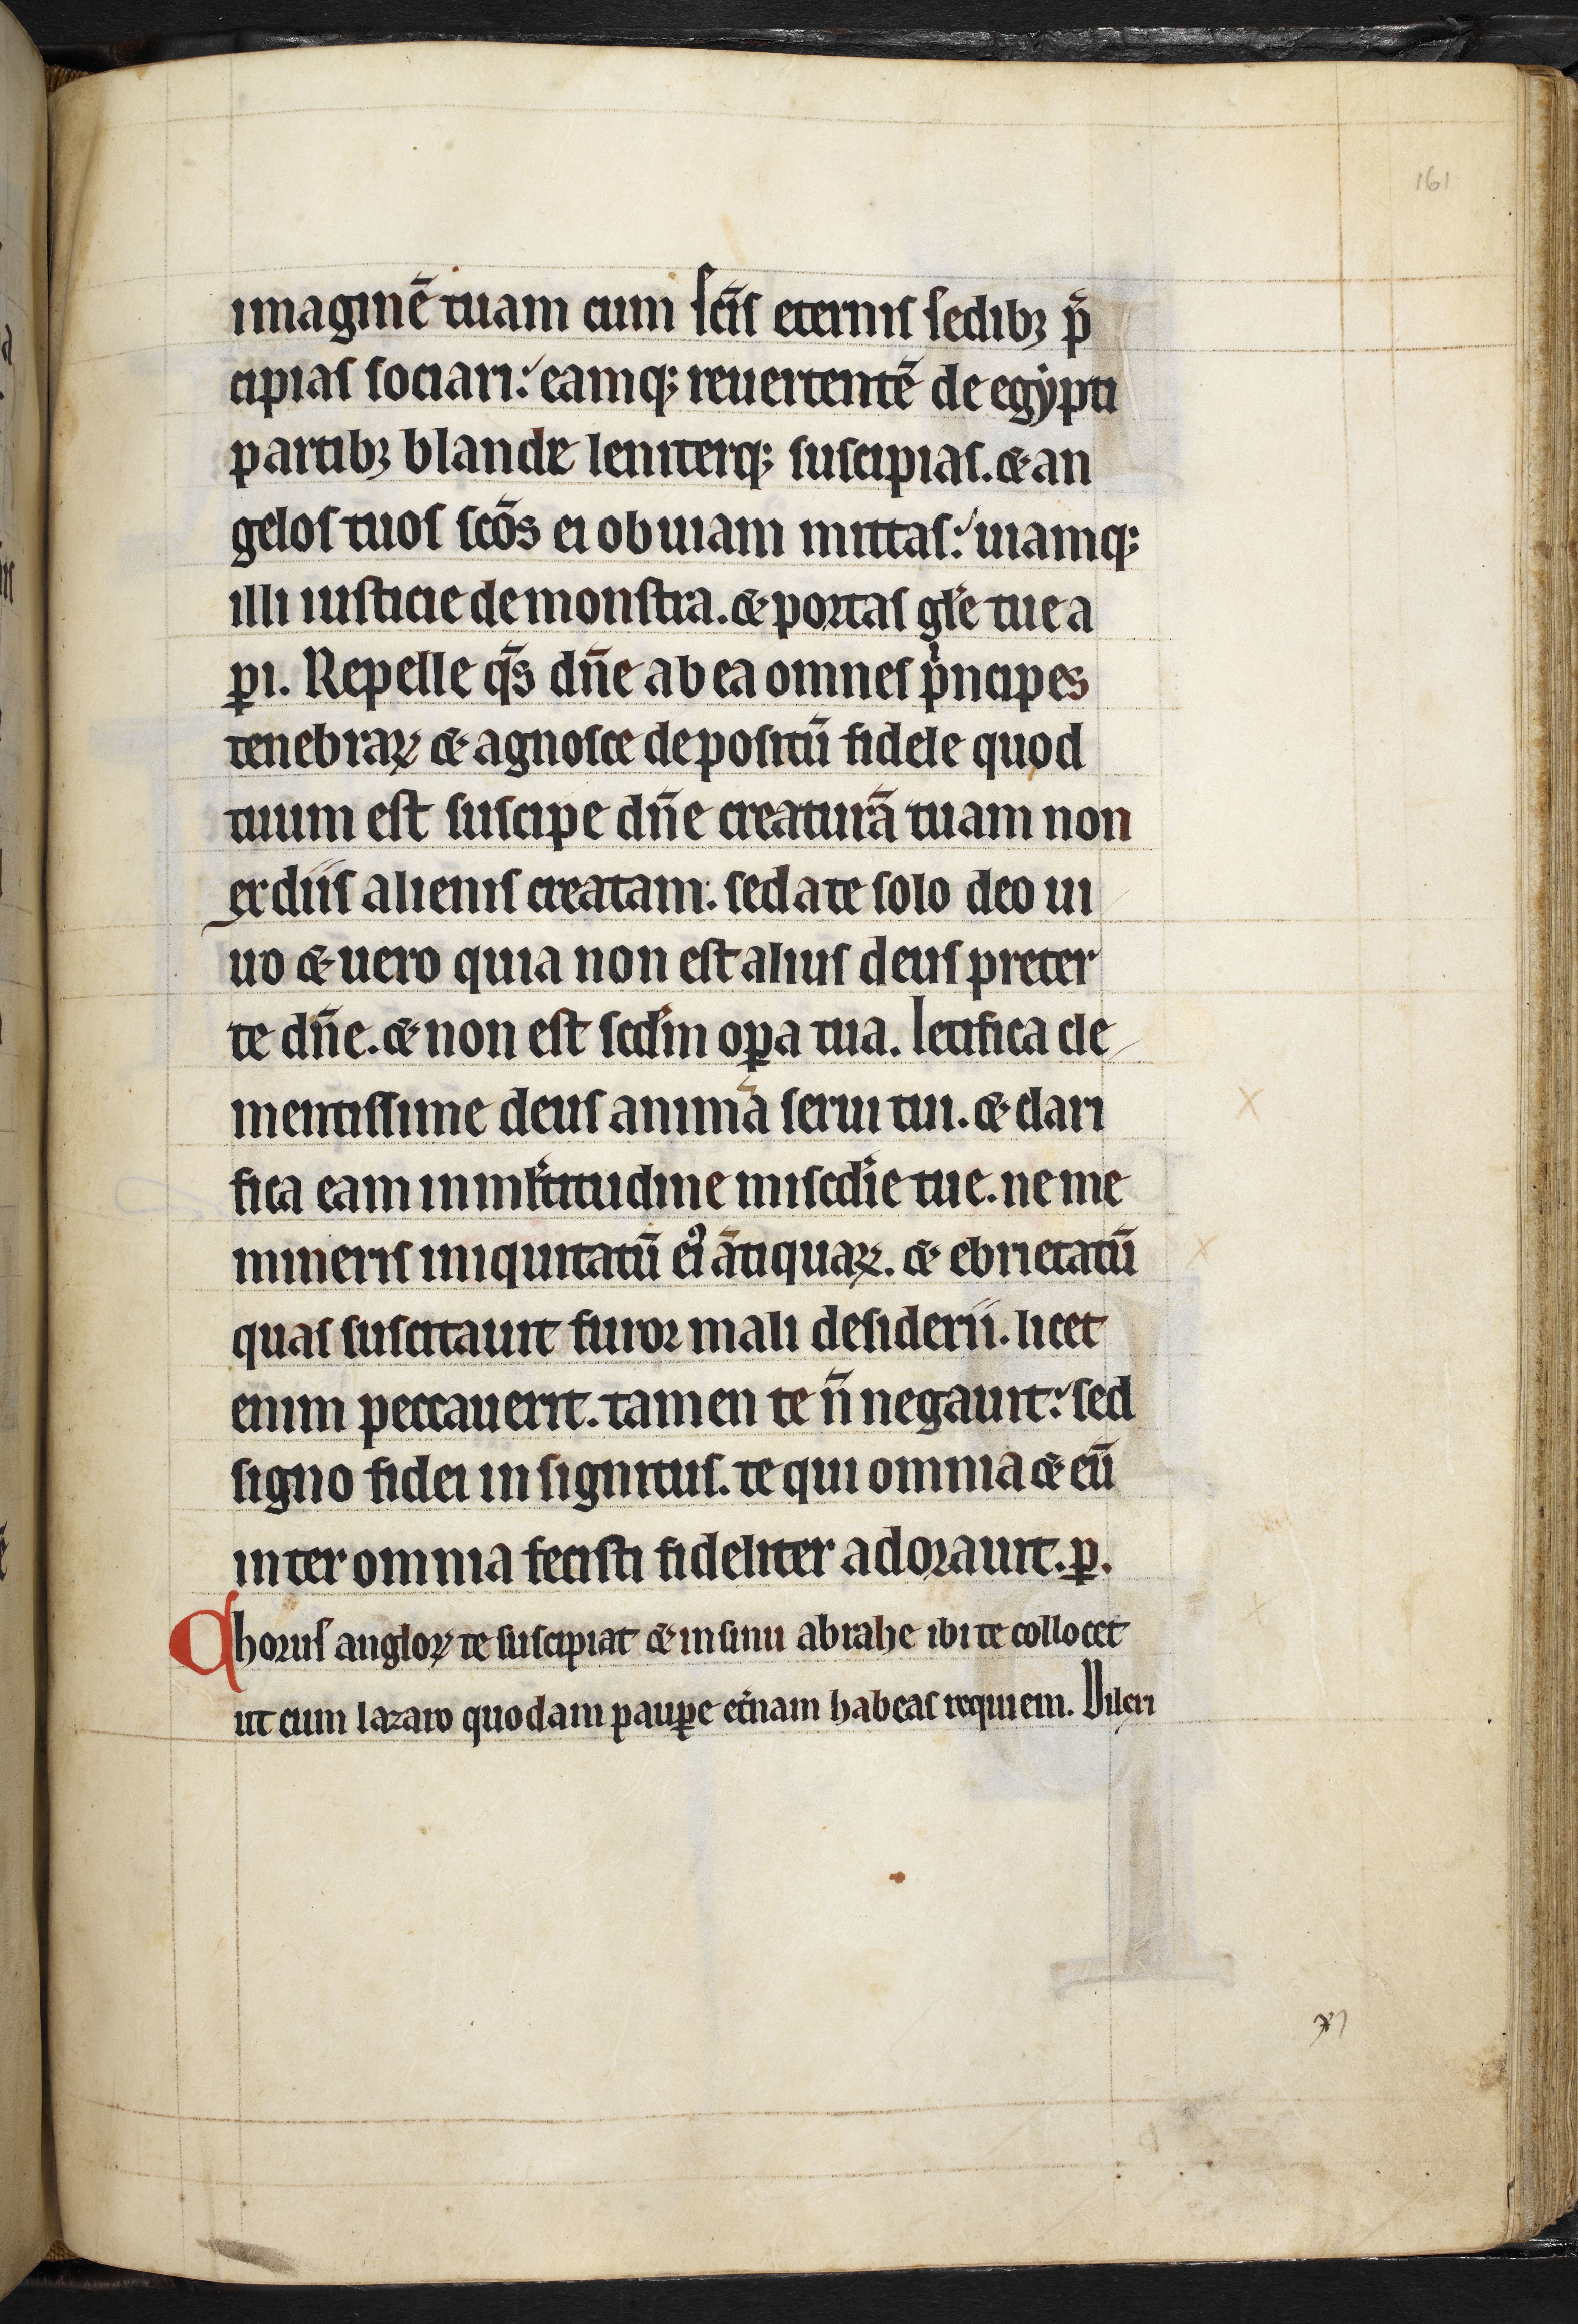 161
imaginē tuam cum sc̄is eternis sedibꝫ p̄
cipias sociari: eamqꝫ reuertentē de egẏpti
partibꝫ blande leniterqꝫ suscipias. & an
gelos tuos sc̄os ei obuiam mittas: uiamqꝫ
illi iusticie demonstra. & portas gl̄e tue a
peri. Repelle q̄s dn̄e ab ea omnes pͥncipes
tenebraꝝ & agnosce depositū fidele quod
tuum est suscipe dn̄e creaturā tuam non
ex diis alienis creatam. sed a te solo deo ui
uo & uero quia non est alius deus preter
te dn̄e. & non est scd̄m oꝑa tua. letifica cle
mentissime deus animā serui tui. & clari
fica eam in ml̄titudine misc̄die tue. ne me
mineris iniquitatū eiꝰ ātiquaꝝ. & ebrietatū
quas suscitauit furor mali desiderii. licet
enim peccauerit. tamen te n̄ negauit: sed
signo fidei insignitus. te qui omnia & eū
inter omnia fecisti fideliter adorauit. ꝑ.
Chorus angloꝝ te suscipiat & in sinu abrahe ibi te collocet
ut cum lazaro quodam pauꝑe et̄nam habeas requiem. Dilexi